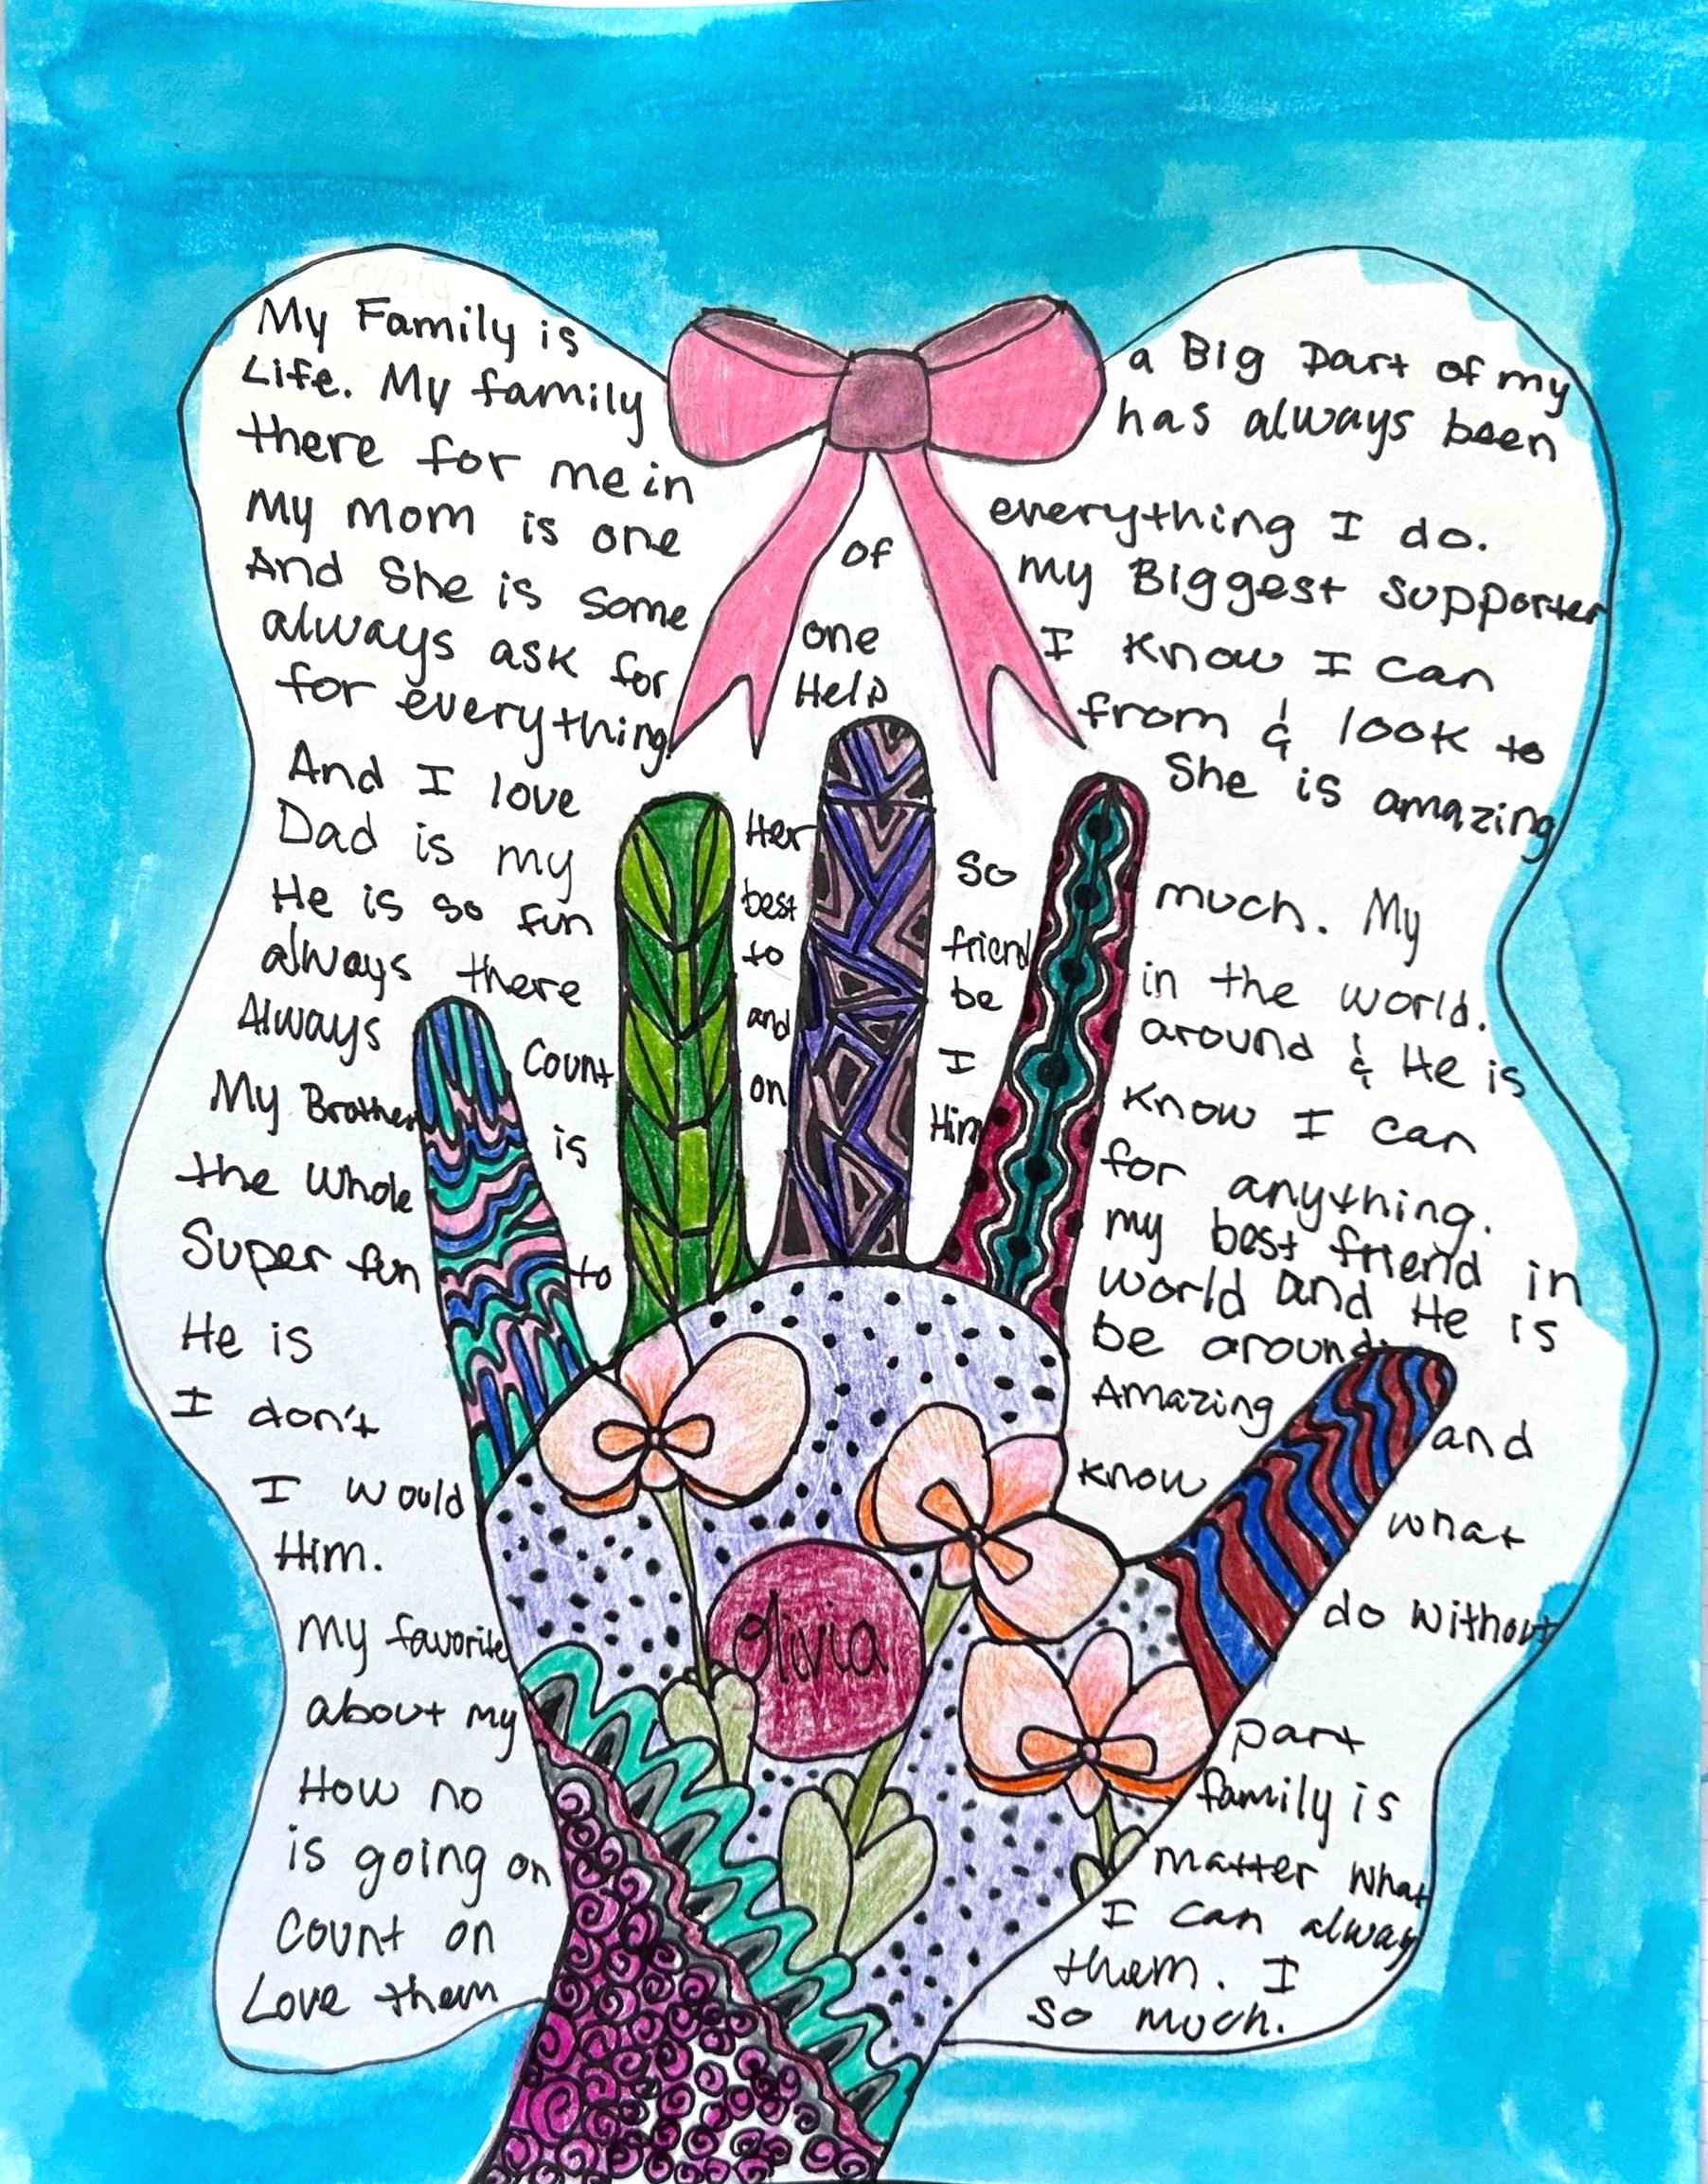 My Family is a Big Part of my
Life. My family has always been
there for me in everything I do.
My mom is one of my Biggest supporter
And She is some one I know I can
always ask for Help from & look to
for everything. She is amazing
And I love Her so much. My
Dad is my best friend in the world.
He is so fun to be around & He is
always there and I know I can
Always Count on Him for anything.
My Brother is my best friend in
the whole world and He is
Super fun to be around.
He is Amazing and
I don't know what
I would do without
Him.
My favorite part
about my family is
How no matter what
is going on I can always
Count on them. I
Love them so much.
Olivia